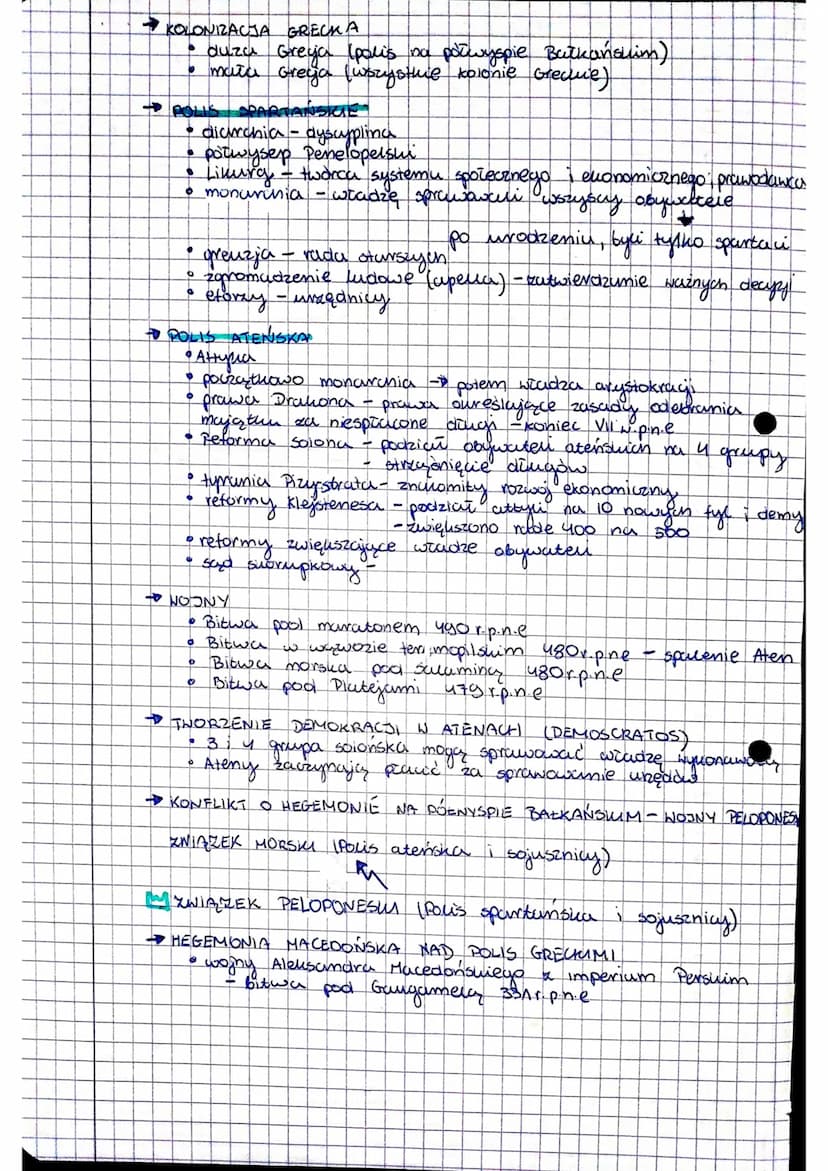 → KOLONIZACJA GRECKA
• duża Grecja (polis na półwyspie Bałkańskim)
• mała Grecja (wszystkie kolonie Greckie)
→ POLIS SPARTAŃSKIE
• diarchia - dyscyplina
• półwysep Penelopelski
• Likurg - twórca systemu społecznego i ekonomicznego, prawodawca
• monarchia - władzę sprawowali wszyscy obywatele
po urodzeniu, byli tylko spartaci
• greuzja - rada starszych
• zgromadzenie ludowe (apella) - zatwierdzanie ważnych decyzji
• eforzy - urzędnicy
→ POLIS ATEŃSKA
• Attyka
• początkowo monarchia → potem władza arystokracji
• prawa Drakona - prawa określające zasady odebrania
majątku za niespłacone długi - koniec VII w.p.n.e
• Reforma Solona - podział obywateli ateńskich na 4 grupy
- strząśnięcie długów
• tyrania Pizystrata - znakomity rozwój ekonomiczny
• reformy Klejstenesa - podział attyki na 10 nowych fyl i demy
- zwiększono radę 400 na 500
• reformy zwiększające władze obywateli
• sąd skorupkowy -
→ WOJNY
• Bitwa pod maratonem 490 r.p.n.e
• Bitwa w wąwozie termopilskim 480r.p.ne - spalenie Aten
• Bitwa morska pod Salaminą 480r.p.n.e
• Bitwa pod Platejami 479 r.p.n.e
→ TWORZENIE DEMOKRACJI W ATENACH (DEMOSCRATOS)
• 3 i 4 grupa solońska mogą sprawować władzę wykonawczą
• Ateny zaczynają płacić za sprawowanie urzędów
→ KONFLIKT O HEGEMONIĘ NA PÓŁWYSPIE BAŁKAŃSKIM - WOJNY PELOPONES
ZWIĄZEK MORSKI (Polis ateńska i sojusznicy)
ZWIĄZEK PELOPONESKI (Polis spartańska i sojusznicy)
→ HEGEMONIA MACEDOŃSKA NAD POLIS GRECKIMI
• wojny Aleksandra Macedońskiego z imperium Perskim
- bitwa pod Gaugamelą 331 r.p.n.e